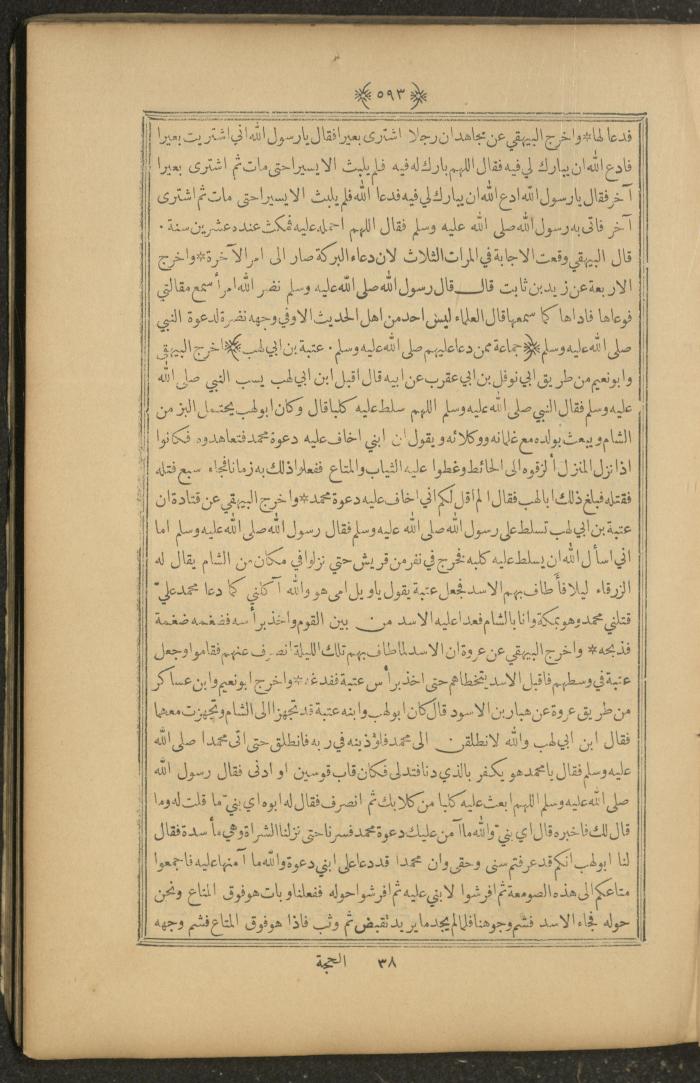 ٥٩٣
فدعا لها * واخرج البيهقي عن مجاهد ان رجلا اشترى بعيرا فقال يا رسول الله اني اشتريت بعيرا
فادع الله ان يبارك لي فيه فقال اللهم بارك له فيه فلم يلبث الا يسيرا حتى مات ثم اشترى بعيرا
آخر فقال يا رسول الله ادع الله ان يبارك لي فيه فدعا الله فلم يلبث الا يسيرا حتى مات ثم اشترى
آخر فاتى به رسول الله صلى الله عليه وسلم فقال اللهم احمله عليه فمكث عنده عشرين سنة .
قال البيهقي وقعت الاجابة في المرات الثلاث لان دعاء البركة صار الى امر الآخرة * واخرج
الاربعة عن زيد بن ثابت قال قال رسول الله صلى الله عليه وسلم نضر الله امرأ سمع مقالتي
فوعاها فاداها كما سمعها قال العلماء ليس احد من اهل الحديث الا وفي وجهه نضرة لدعوة النبي
صلى الله عليه وسلم جماعة ممن دعا عليهم صلى الله عليه وسلم . عتبة بن ابي لهب اخرج البيهقي
وابو نعيم من طريق ابي نوفل بن ابي عقرب عن ابيه قال اقبل ابن ابي لهب يسب النبي صلى الله
عليه وسلم فقال النبي صلى الله عليه وسلم اللهم سلط عليه كلبا قال وكان ابو لهب يحتمل البز من
الشام ويبعث بولده مع غلمانه ووكلائه ويقول ان ابني اخاف عليه دعوة محمد فتعاهدوه فكانوا
اذا نزل المنزل ألزقوه الى الحائط وغطوا عليه الثياب والمتاع ففعلوا ذلك به زمانا فجاء سبع فتله
فقتله فبلغ ذلك ابا لهب فقال الم اقل لكم اني اخاف عليه دعوة محمد * واخرج البيهقي عن قتادة ان
عتبة بن ابي لهب تسلط على رسول الله صلى الله عليه وسلم فقال رسول الله صلى الله عليه وسلم اما
اني اسأل الله ان يسلط عليه كلبه فخرج في نفر من قريش حتي نزلوا في مكان من الشام يقال له
الزرقاء ليلا فأطاف بهم الاسد فجعل عتبة يقول ياويل امى هو والله آكلني كما دعا محمد عليّ
قتلني محمد وهو بمكة وانا بالشام فعدا عليه الاسد من بين القوم واخذ برأسه فضغمه ضغمة
فذبحه * واخرج البيهقي عن عروة ان الاسد لما طاف بهم تلك الليلة انصرف عنهم فقاموا وجعل
عتبة في وسطهم فاقبل الاسد يتخطاهم حتى اخذ برأس عتبة ففدغه * واخرج ابو نعيم وابن عساكر
من طريق عروة عن هبار بن الاسود قال كان ابو لهب وابنه عتبة قد تجهزا الى الشام وتجهزت معهما
فقال ابن ابي لهب والله لانطلقن الى محمد فلأوذينه في ربه فانطلق حتى اتى محمدا صلى الله
عليه وسلم فقال يا محمد هو يكفر بالذي دنا فتدلى فكان قاب قوسين او ادنى فقال رسول الله
صلى الله عليه وسلم اللهم ابعث عليه كلبا من كلابك ثم انصرف فقال له ابوه اي بنيّ ما قلت له وما
قال لك فاخبره قال اي بنيّ والله ما آمن عليك دعوة محمد فسرنا حتى نزلنا الشراة وهي مأسدة فقال
لنا ابو لهب انكم قد عرفتم سنى وحقى وان محمدا قد دعا على ابني دعوة والله ما آمنها عليه فاجمعوا
متاعكم الى هذه الصومعة ثم افرشوا لابني عليه ثم افرشوا حوله ففعلنا وبات هو فوق المتاع ونحن
حوله فجاء الاسد فشم وجوهنا فلما لم يجد ما يريد تقبض ثم وثب فاذا هو فوق المتاع فشم وجهه
٣٨ الحجة